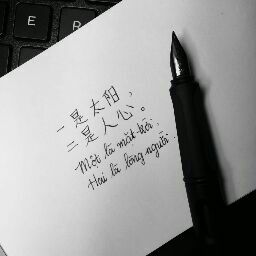 E R
一是太阳，
二是人心。
Một là mặt trời,
Hai là lòng người.